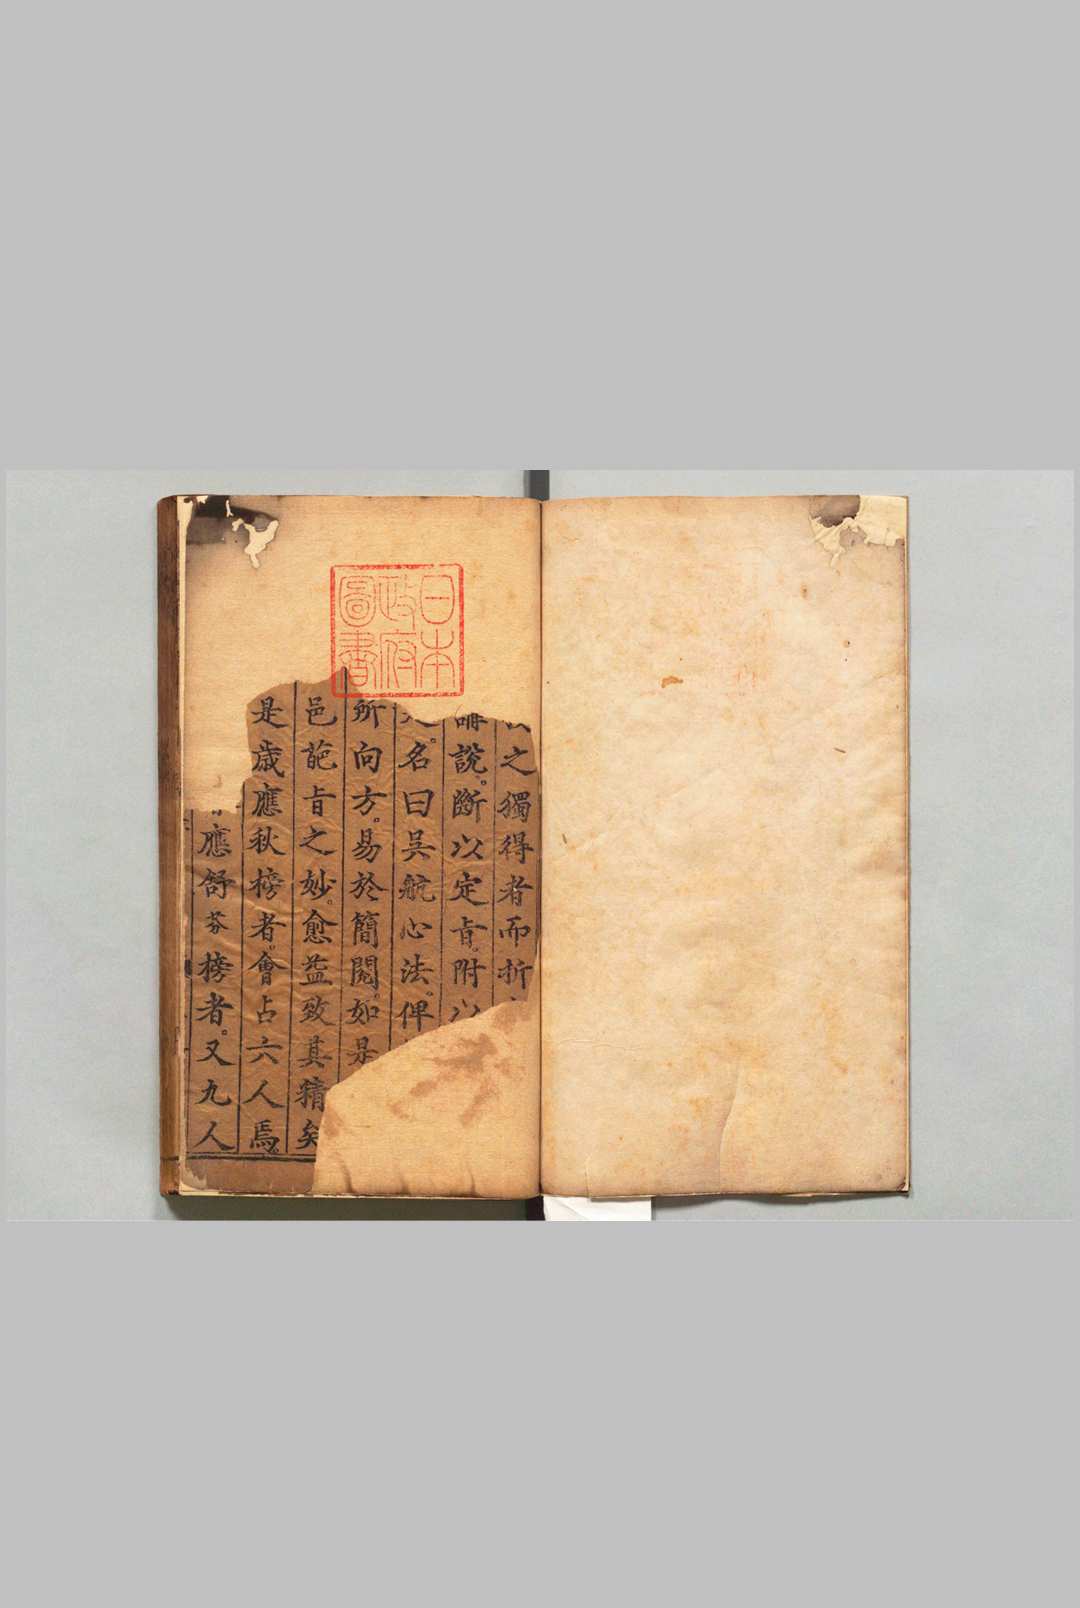 日本
政府
圖書
之獨得者而折
講說。斷以定旨。附以
名曰吳航心法。俾
所向方。易於簡閱。如是
邑葩旨之妙。愈益致其精矣
是歲應秋榜者。會占六人焉。
應舒芬榜者。又九人